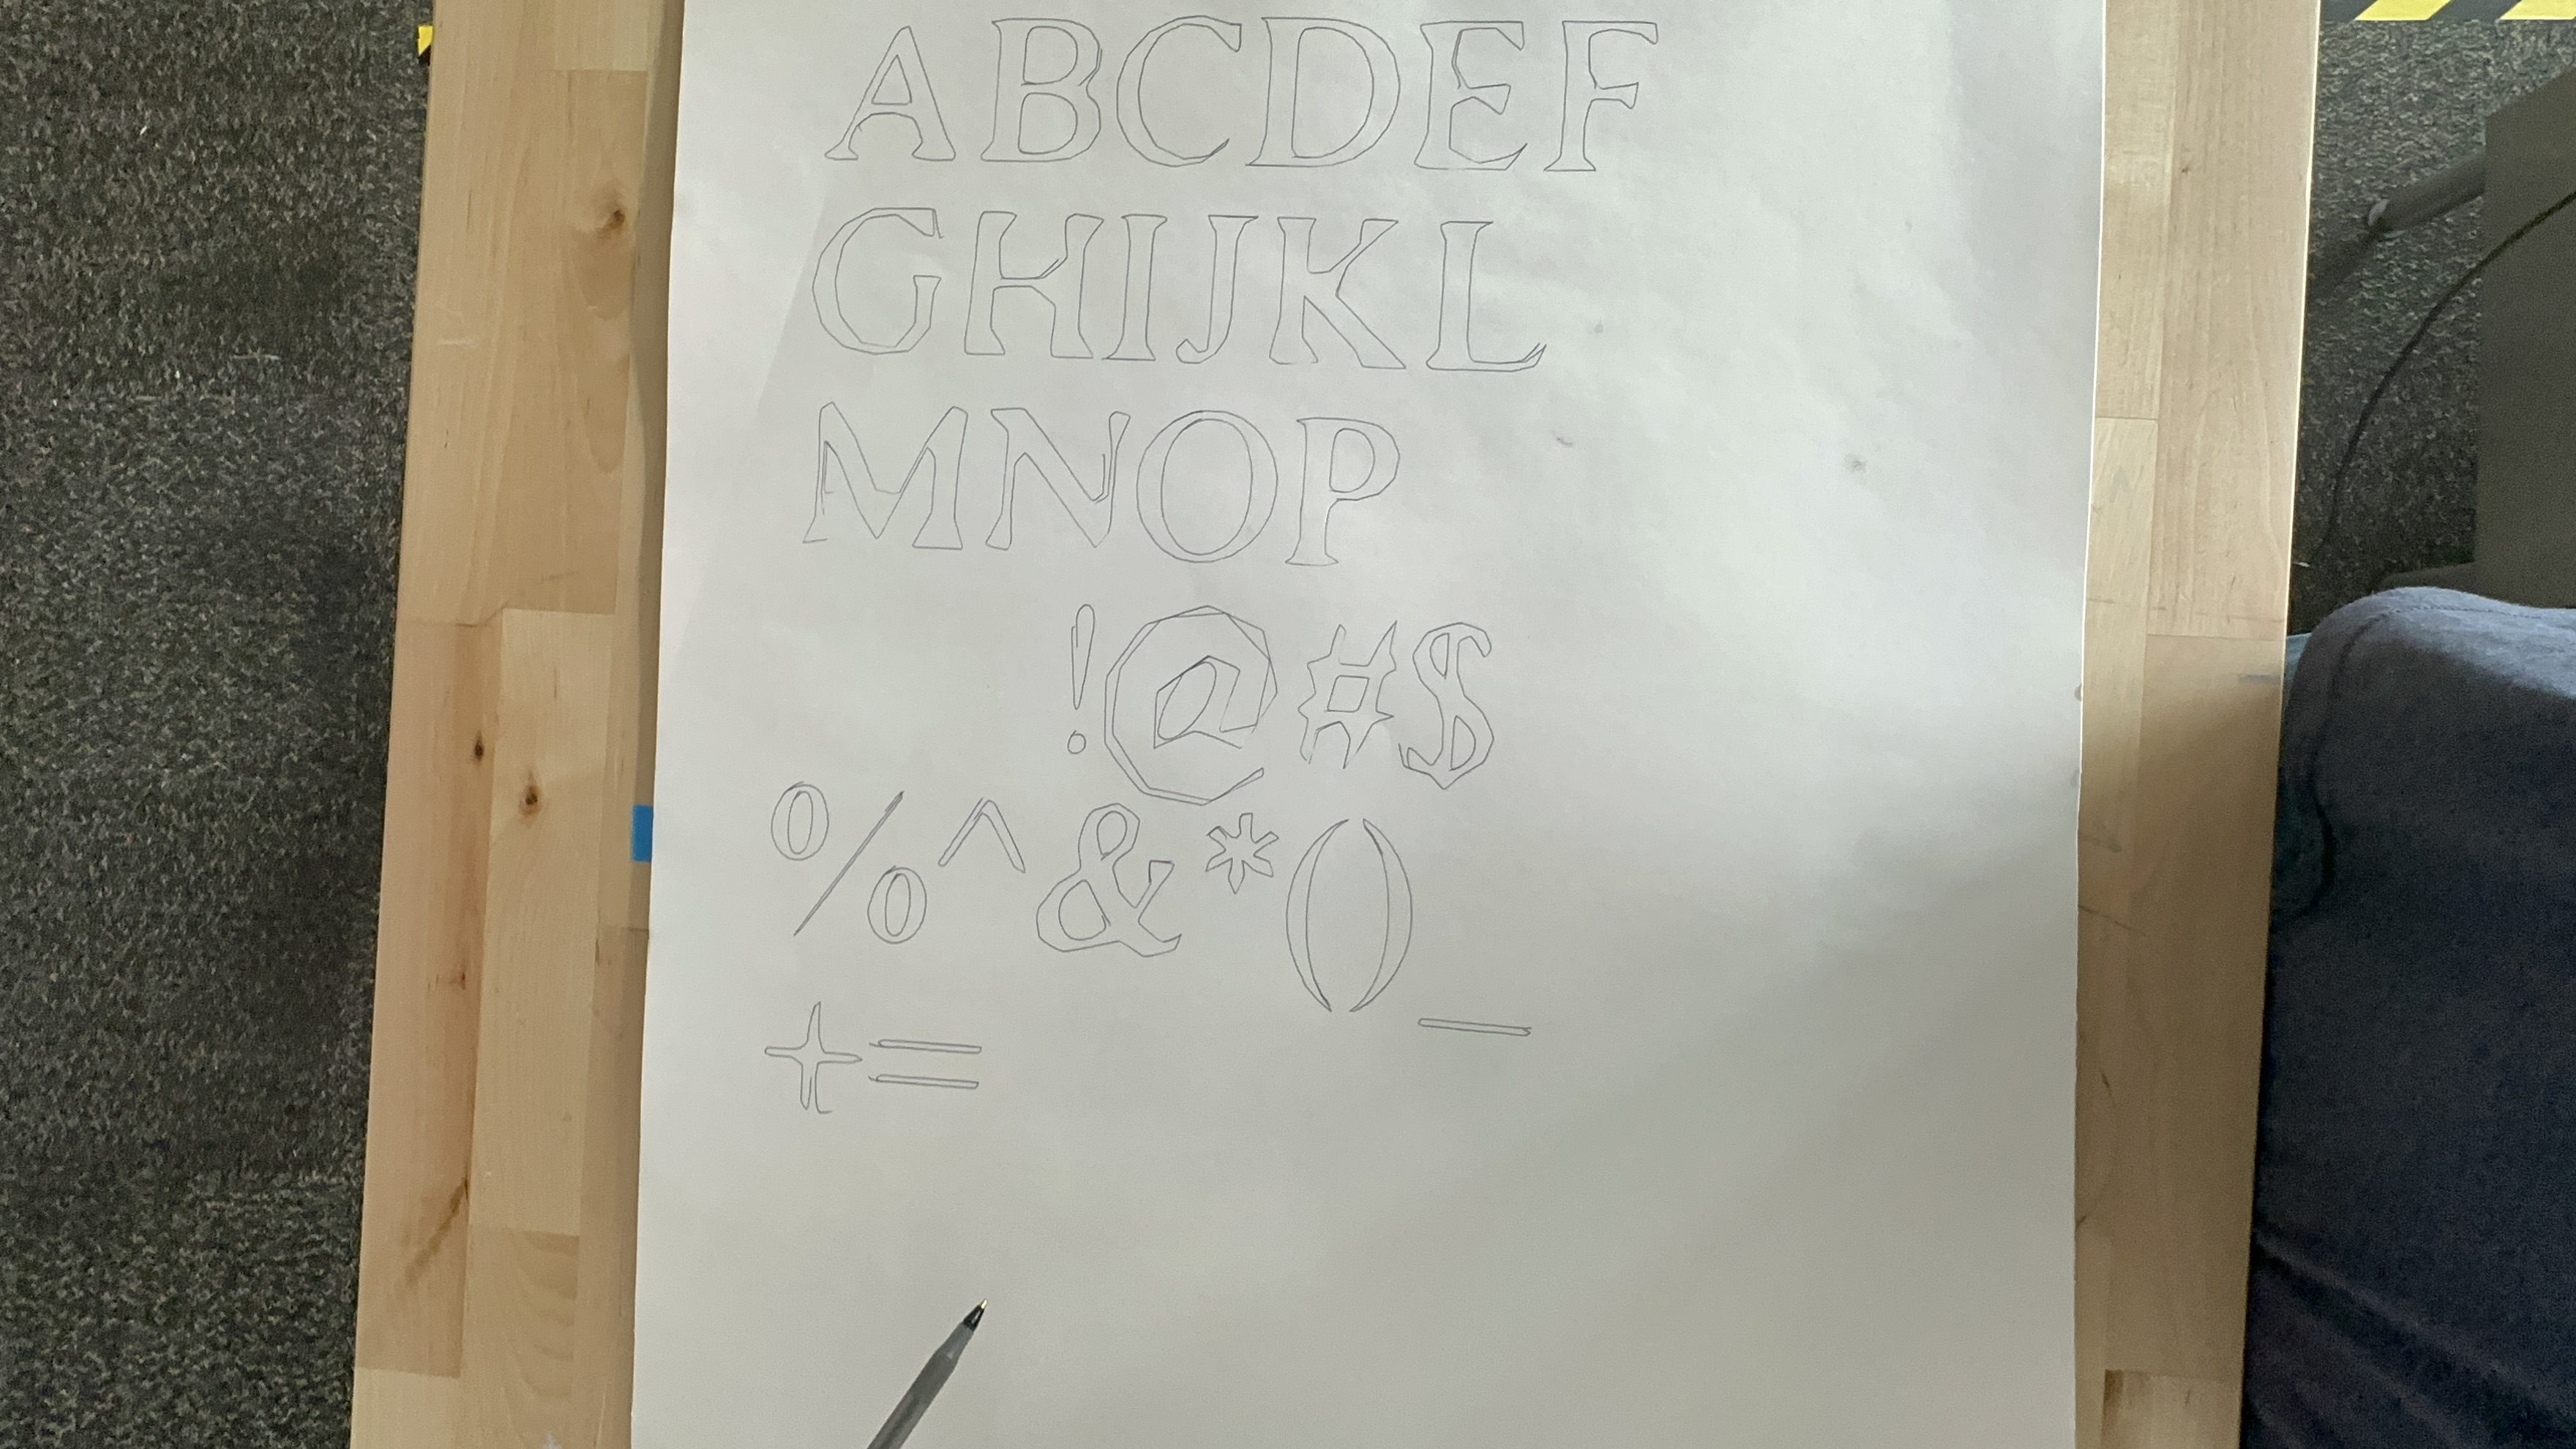 ABCDEF
GHIJKL
MNOP
!@#$
%^&*()_
+=